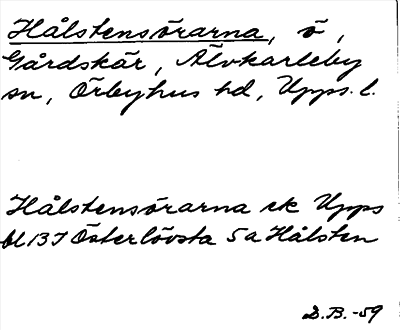 Hålstensörarna, ö,
Gårdskär, Älvkarleby
sn, Örbyhus hd, Upps. l.
Hålstensörarna ek Upps
bl 137 Österlövsta 5a Hålsten
D.B. -59